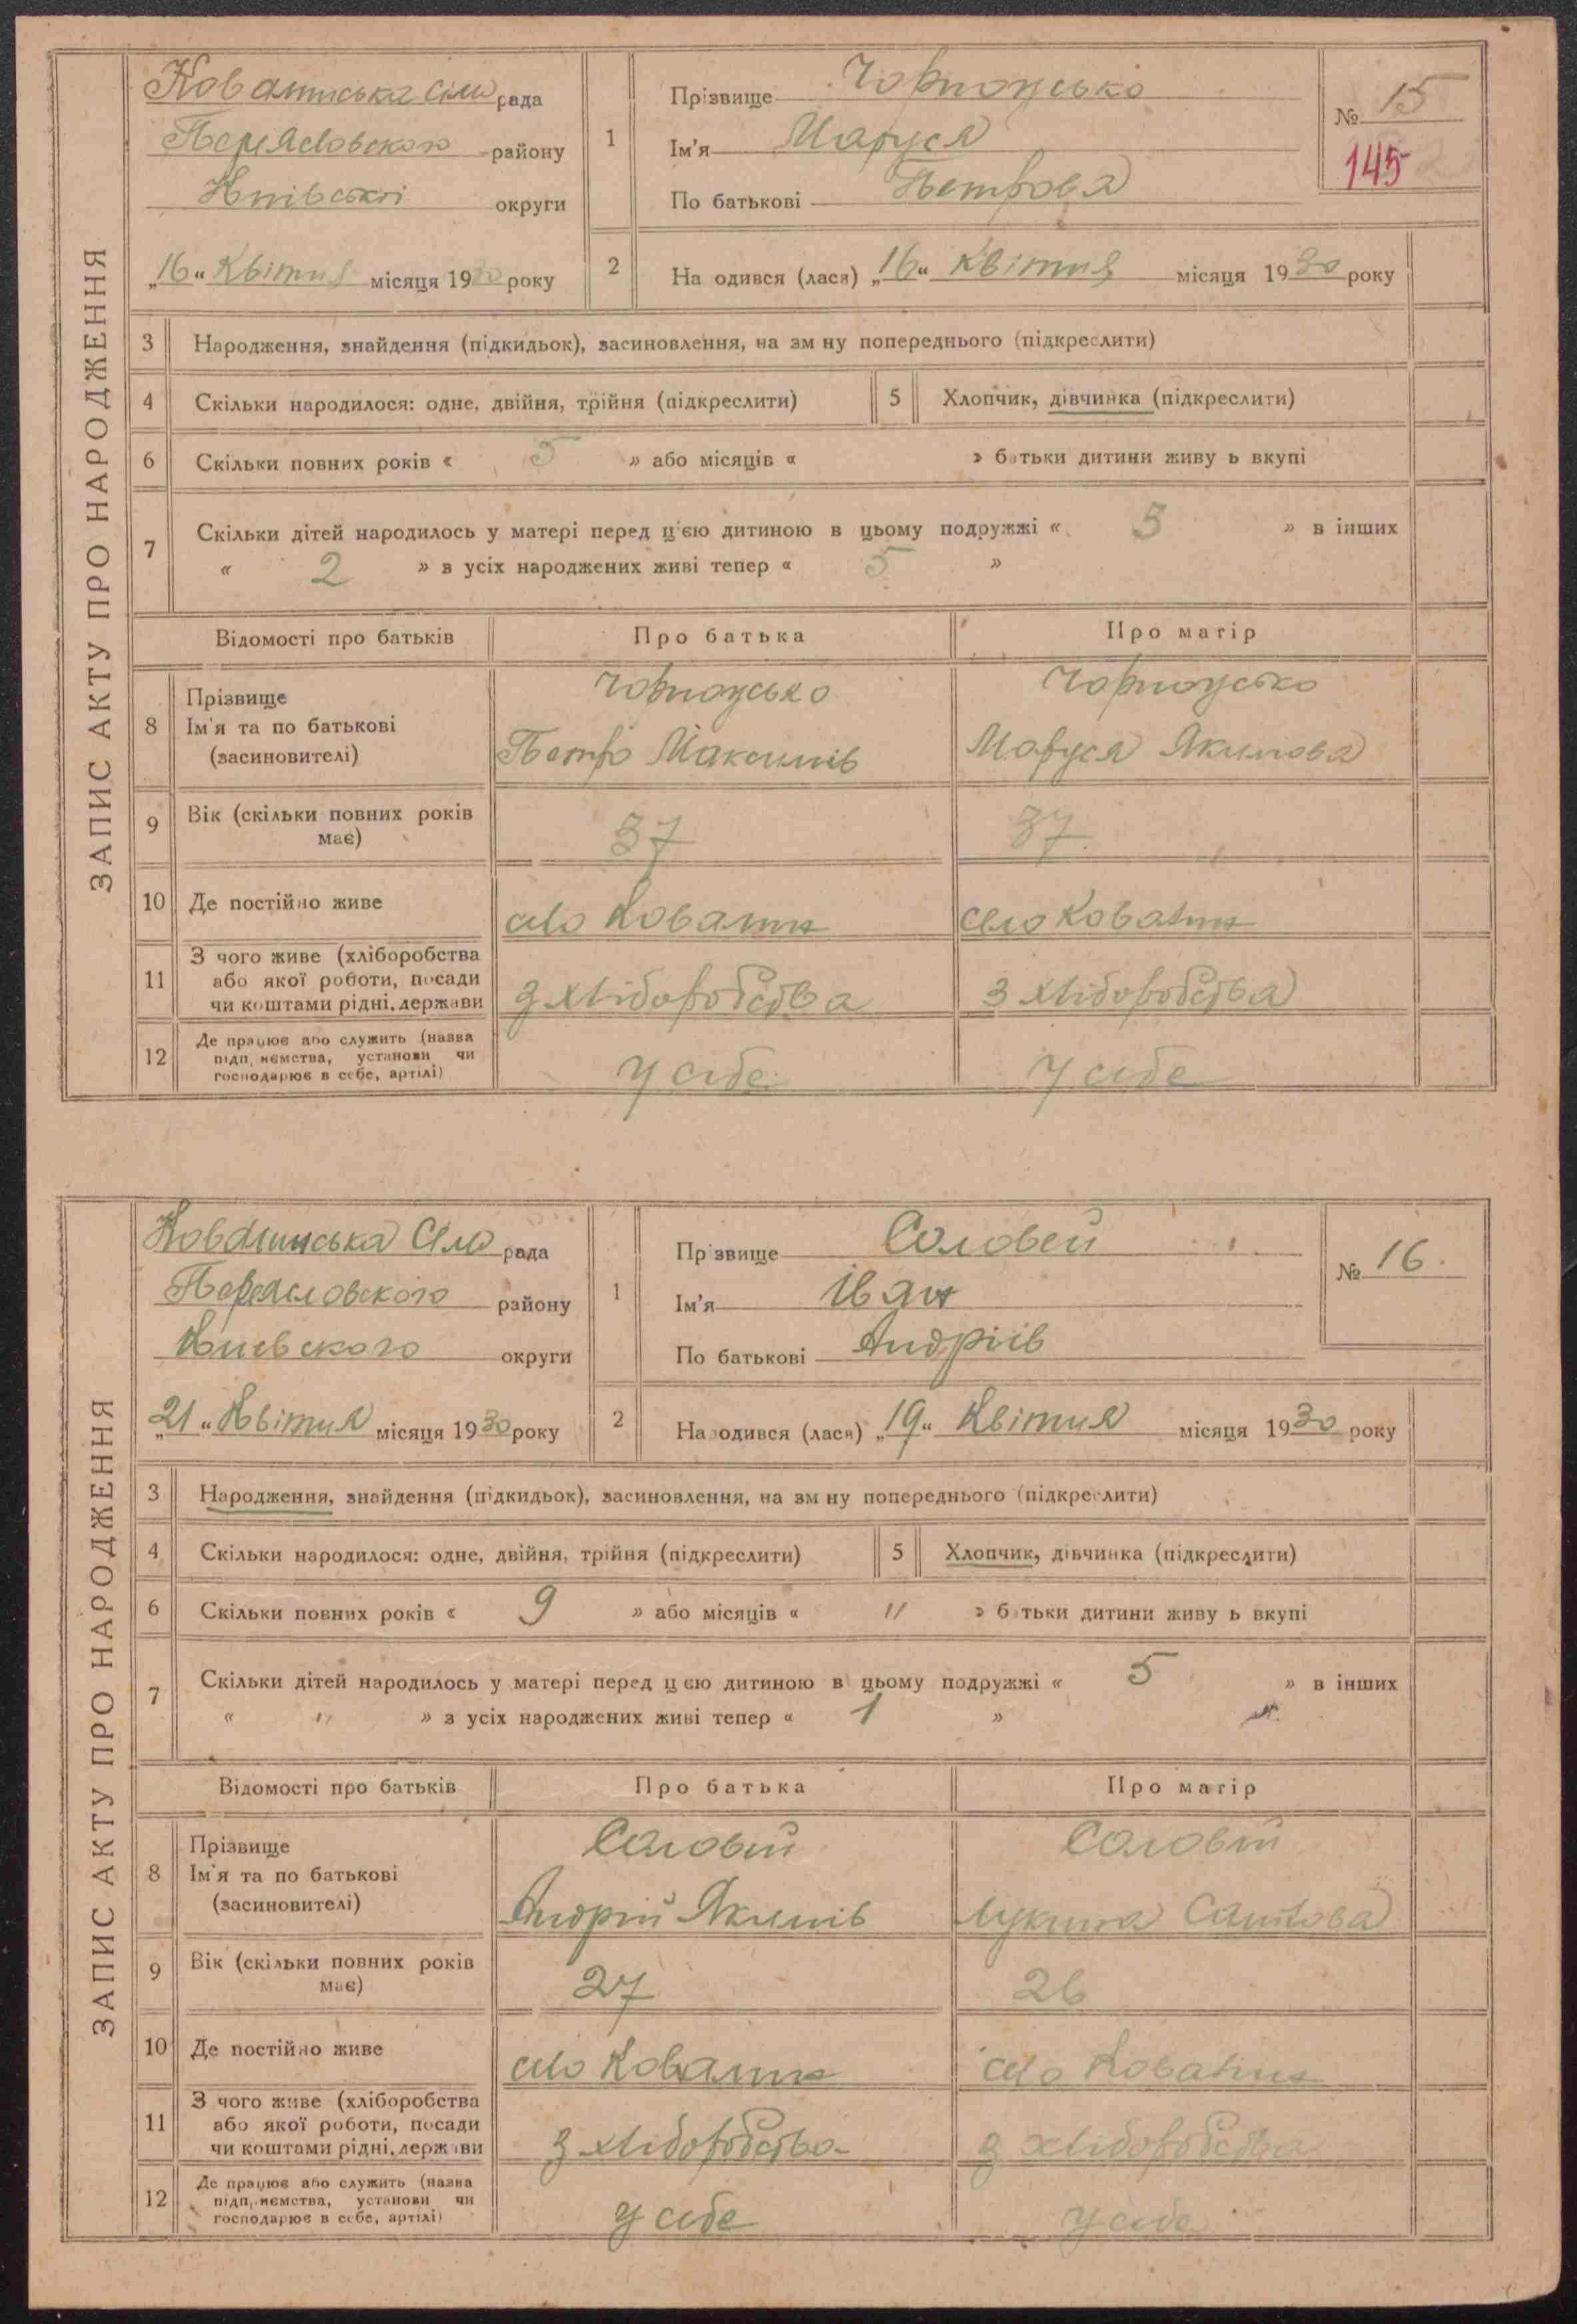 ЗАПИС АКТУ ПРО НАРОДЖЕННЯ
Ковалинська Сіль рада
Переясловского району
округи
„16“ Квітня місяця 1930 року
1
Прізвище
Ім'я Маруся
По батькові Петрова
№ 15
145
2 На одився (лася) „16“ Квітня місяця 1930 року
3 Народження, знайдення (підкидьок), засиновлення, на зм ну попереднього (підкреслити)
4 Скільки народилося: одне, двійня, трійня (підкреслити) 5 Хлопчик, дівчинка (підкреслити)
6 Скільки повних років « 5 » або місяців « » б тьки дитини живу ь вкупі
7 Скільки дітей народилось у матері перед ц'єю дитиною в цьому подружжі « 5 » в інших
« 2 » з усіх народжених живі тепер « 5 »
Відомості про батьків Про батька Про матір
8 Прізвище
Ім'я та по батькові
(засиновителі)
Петро Максимів Маруся Якимова
9 Вік (скільки повних років має) 37 37
10 Де постійно живе село Ковалин село Ковалин
11 З чого живе (хліборобства
або якої роботи, посади
чи коштами рідні, держави
з хліборобства з хліборобства
12 Де працює або служить (назва
підп иємства, установи чи
господарює в себе, артілі)
у себе у себе
ЗАПИС АКТУ ПРО НАРОДЖЕННЯ
Ковалинська Сіль рада
Переясловского району
Киевского округи
„21“ Квітня місяця 1930 року
1
Пр звище Соловей
Ім'я Іван
По батькові Андріів
№ 16
2 На одився (лася) „19“ Квітня місяця 1930 року
3 Народження, знайдення (підкидьок), засиновлення, на зм ну попереднього (підкреслити)
4 Скільки народилося: одне, двійня, трійня (підкреслити) 5 Хлопчик, дівчинка (підкреслити)
6 Скільки повних років « 9 » або місяців « " » б тьки дитини живу ь вкупі
7 Скільки дітей народилось у матері перед ц єю дитиною в цьому подружжі « 5 » в інших
« " » з усіх народжених живі тепер « 1 »
Відомості про батьків Про батька Про матір
8 Прізвище
Ім'я та по батькові
(засиновителі)
Соловій Соловій
Андрій Якимів
9 Вік (скільки повних років має) 27 26
10 Де постійно живе село Ковалин село Ковалин
11 З чого живе (хліборобства
або якої роботи, посади
чи коштами рідні, держ ви
з хліборобства з хліборобства
12 Де працює або служить (назва
підп иємства, установи чи
господарює в себе, артілі)
у себе у себе